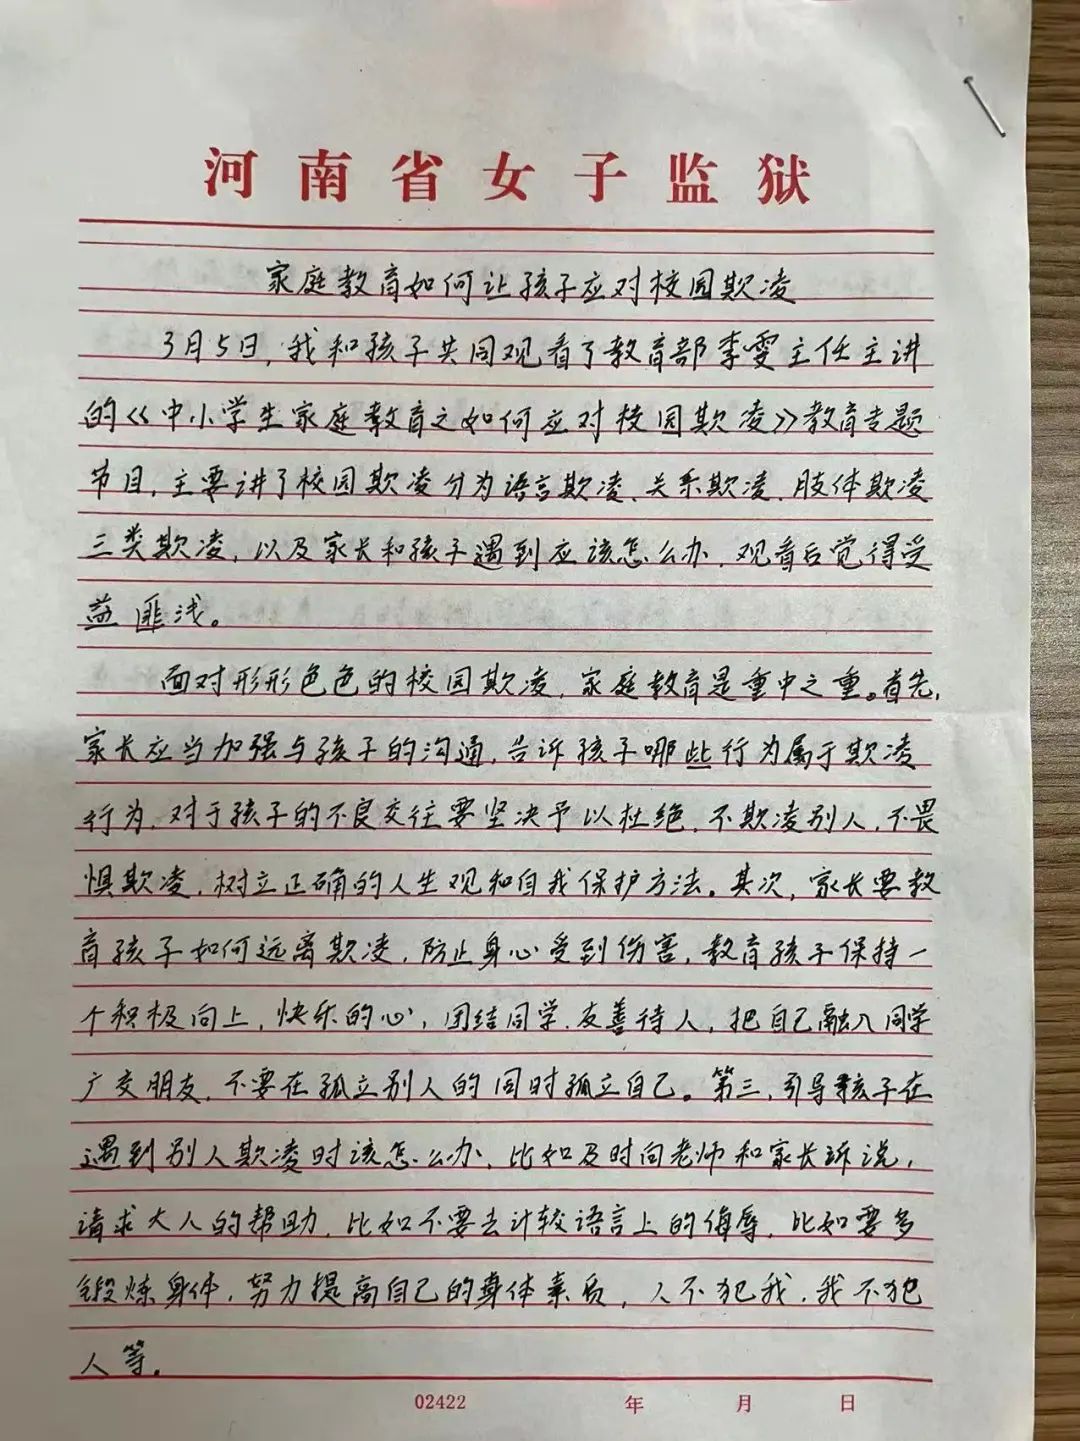 河南省女子监狱
家庭教育如何让孩子应对校园欺凌
3月5日,我和孩子共同观看了教育部李雯主任主讲
的《中小学生家庭教育之如何应对校园欺凌》教育专题
节目,主要讲了校园欺凌分为语言欺凌、关系欺凌、肢体欺凌
三类欺凌,以及家长和孩子遇到应该怎么办,观看后觉得受
益匪浅。
面对形形色色的校园欺凌,家庭教育是重中之重。首先,
家长应当加强与孩子的沟通,告诉孩子哪些行为属于欺凌
行为,对于孩子的不良交往要坚决予以杜绝,不欺凌别人,不畏
惧欺凌,树立正确的人生观和自我保护方法。其次,家长要教
育孩子如何远离欺凌,防止身心受到伤害,教育孩子保持一
个积极向上,快乐的心,团结同学,友善待人,把自己融入同学
广交朋友,不要在孤立别人的同时孤立自己。第三,引导孩子在
遇到别人欺凌时该怎么办,比如及时向老师和家长诉说,
请求大人的帮助,比如不要去计较语言上的侮辱,比如要多
锻炼身体,努力提高自己的身体素质,人不犯我,我不犯
人等。
02422 年 月 日